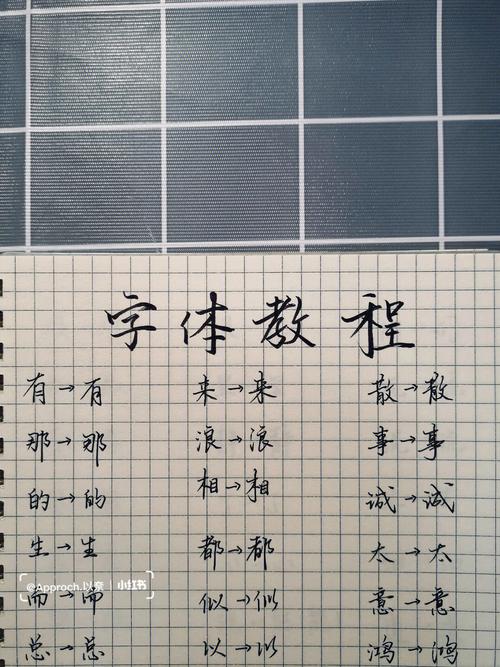 字体教程
有→有 来→来 散→散
那→那 浪→浪 事→事
的→的 相→相 诚→诚
生→生 都→都 太→太
而→而 似→似 意→意
总→总 以→以 鸿→鸿
@Approch.以奈 小红书